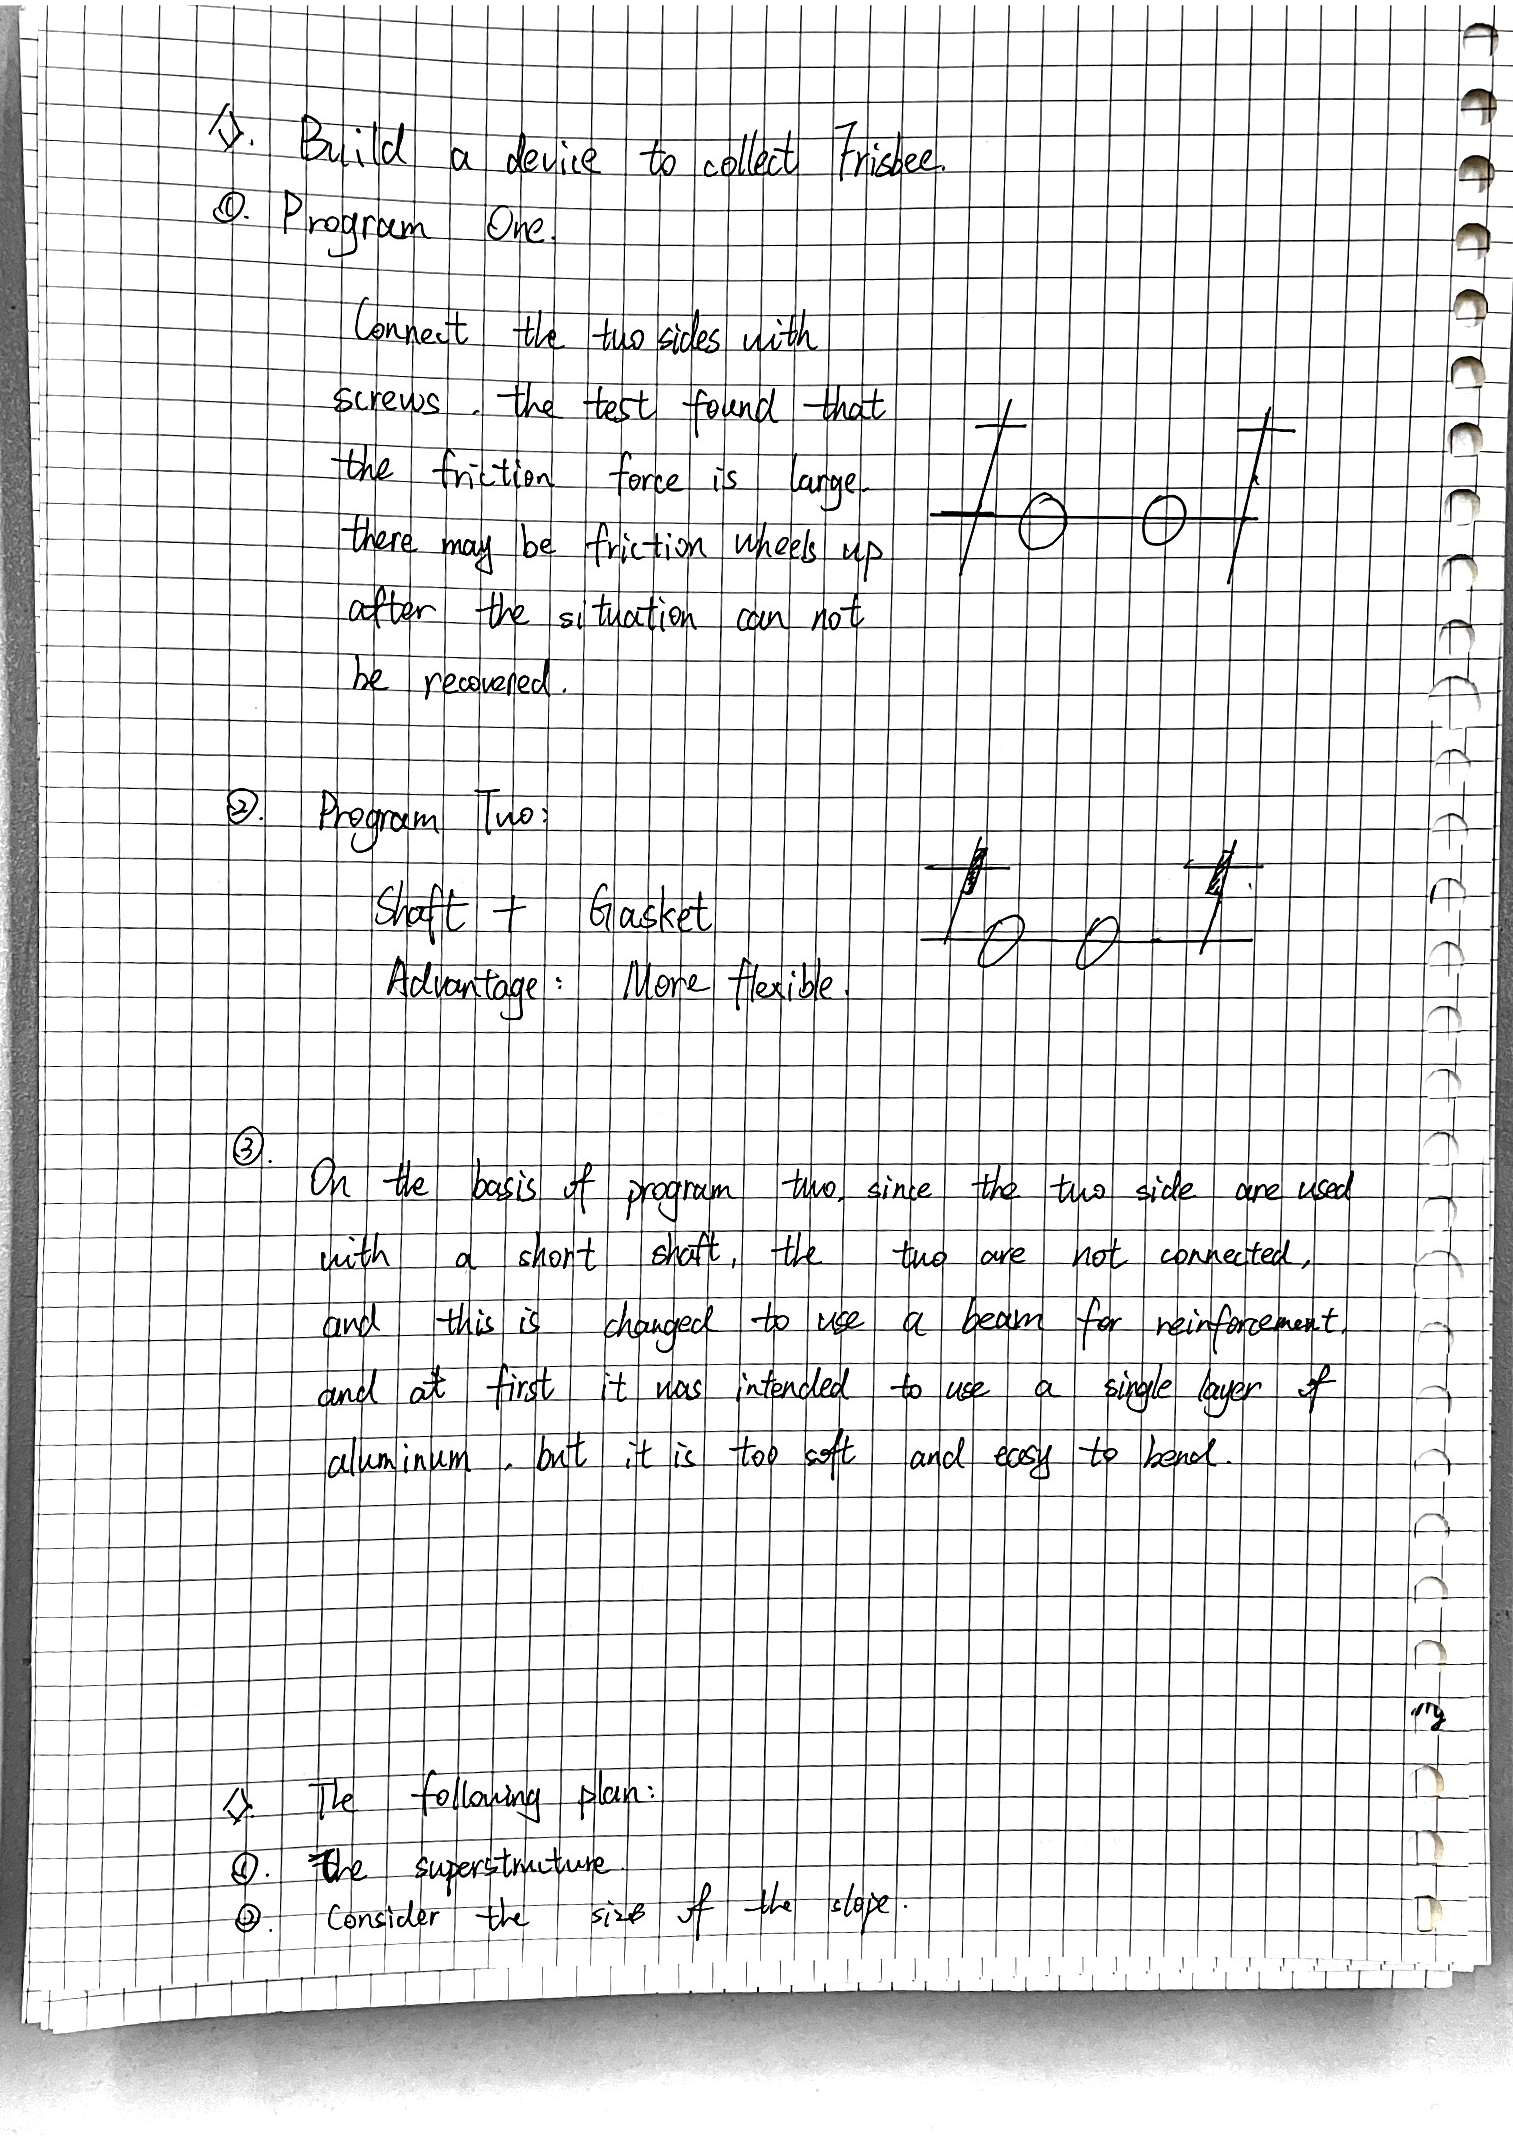 ◇. Build a device to collect Frisbee.
①. Program One.
Connect the two sides with
screws. the test found that
the friction force is large.
there may be friction wheels up
after the situation can not
be recovered.
②. Program Two:
Shaft + Gasket
Advantage: More flexible.
③.
On the basis of program two, since the two side are used
with a short shaft, the two are not connected,
and this is changed to use a beam for reinforcement,
and at first it was intended to use a single layer of
aluminum, but it is too soft and easy to bend.
◇. The following plan:
①. The superstructure
②. Consider the size of the slope.